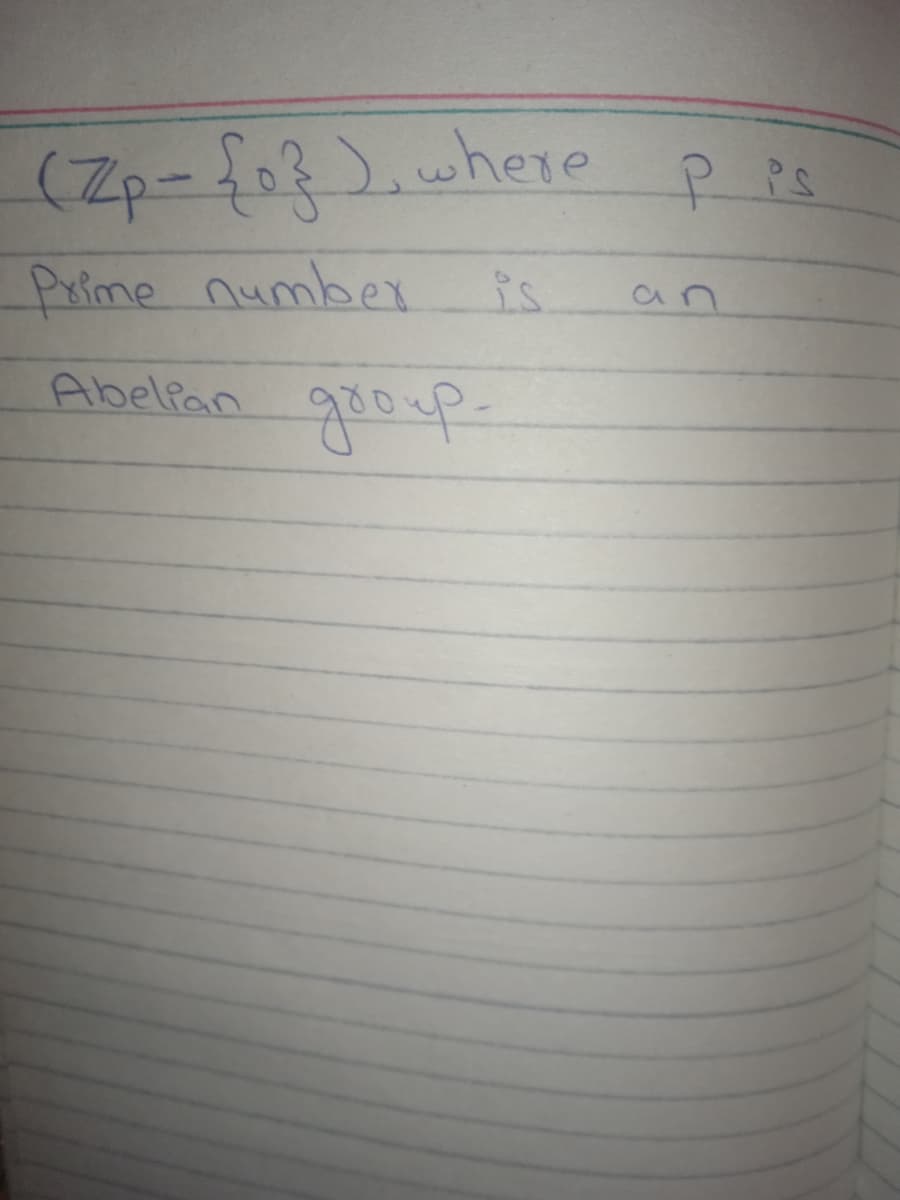 (Zp-{0}), where p is
Prime number is an
Abelian group-